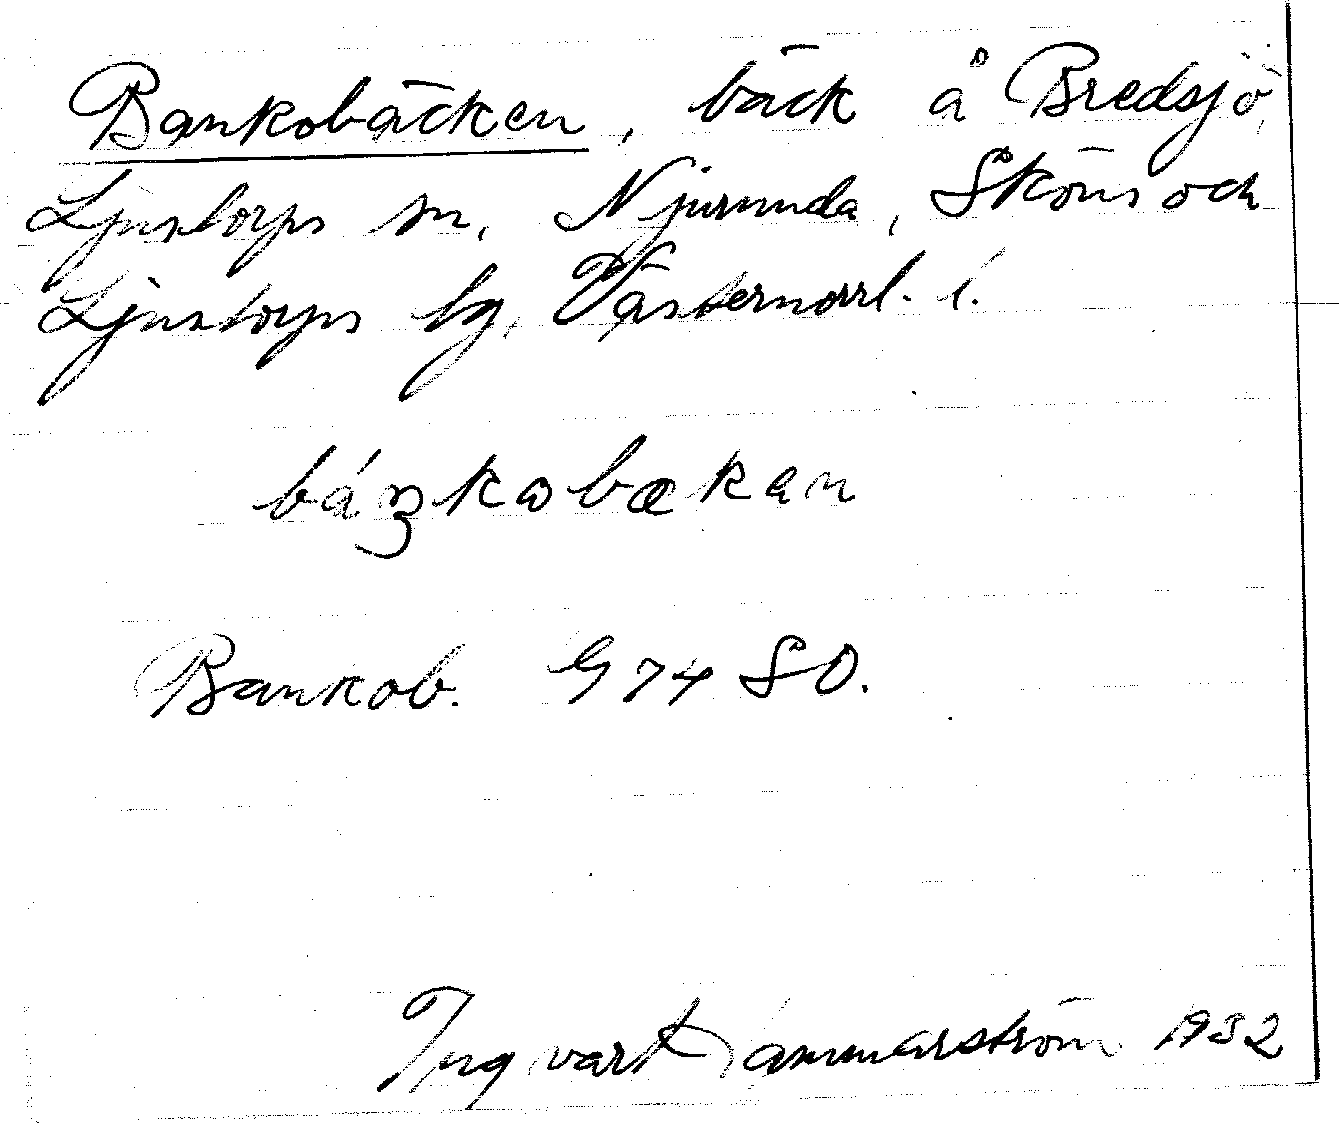 Bankobäcken, bäck å Bredsjö,
Ljustorps sn, Njurunda, Sköns och
Ljustorps tg, Västernorrl. l.
báŋkobækan
Bankob. G 74 SO.
Ingvar Hammarström 1932